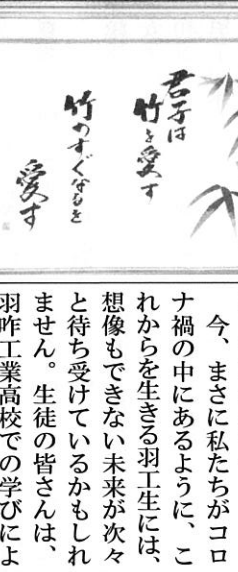 君子は
竹を愛す
竹のすぐなるを
愛す
今、まさに私たちがコロ
ナ禍の中にあるように、こ
れからを生きる羽工生には、
想像もできない未来が次々
と待ち受けているかもしれ
ません。生徒の皆さんは、
羽咋工業高校での学びによ